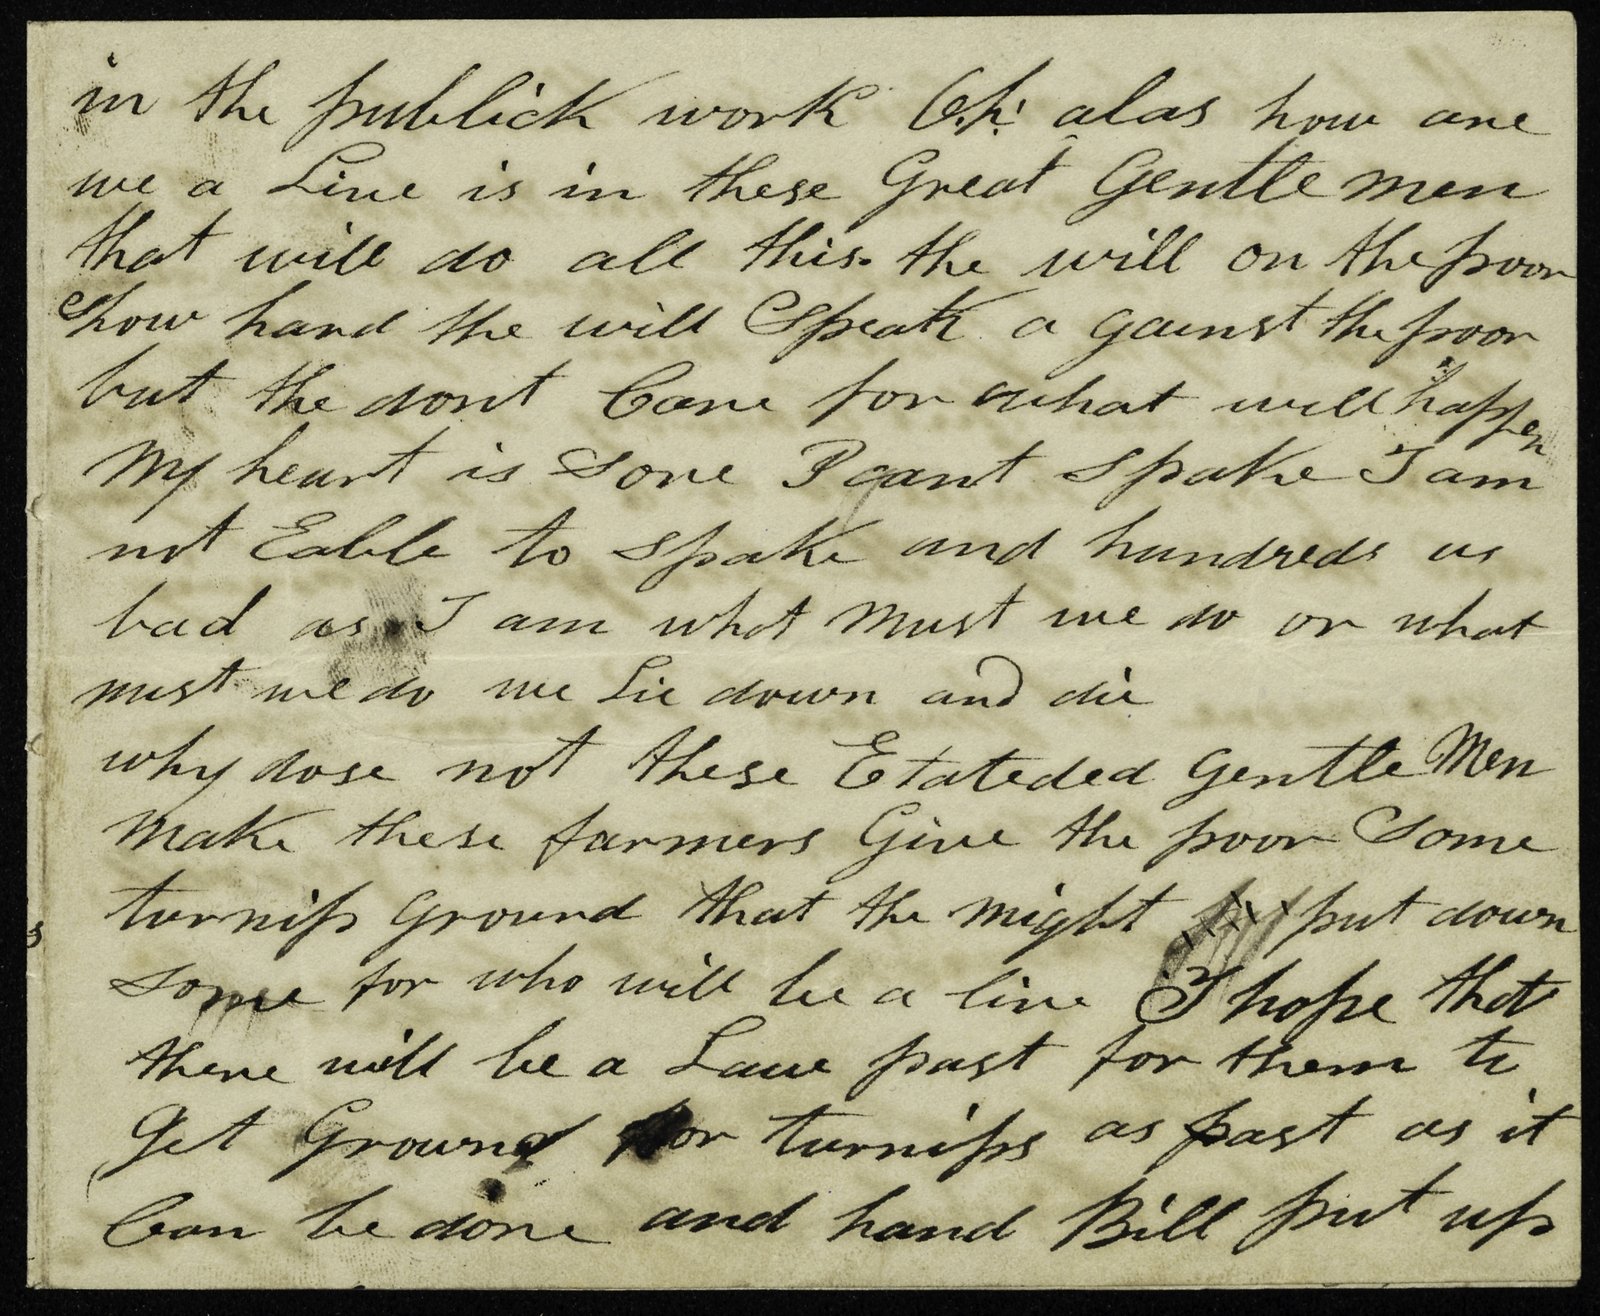 in the publick work Oh! alas how are
we a Live is in these Great Gentle men
that will do all this. the will on the poor
how hard the will Speak a gainst the poor
but the dont Care for what will happen
My heart is Sore I cant spake I am
not Eable to spake and hundreds as
bad as I am what Must we do or what
must we do we Lie down and die
why dose not these Estateded Gentle Men
Make these farmers Give the poor Some
turnip Ground that the might put down
some for who will be a live I hope that
there will be a Law past for them to
Get Ground for turnips as fast as it
Can be done and hand Bill put up